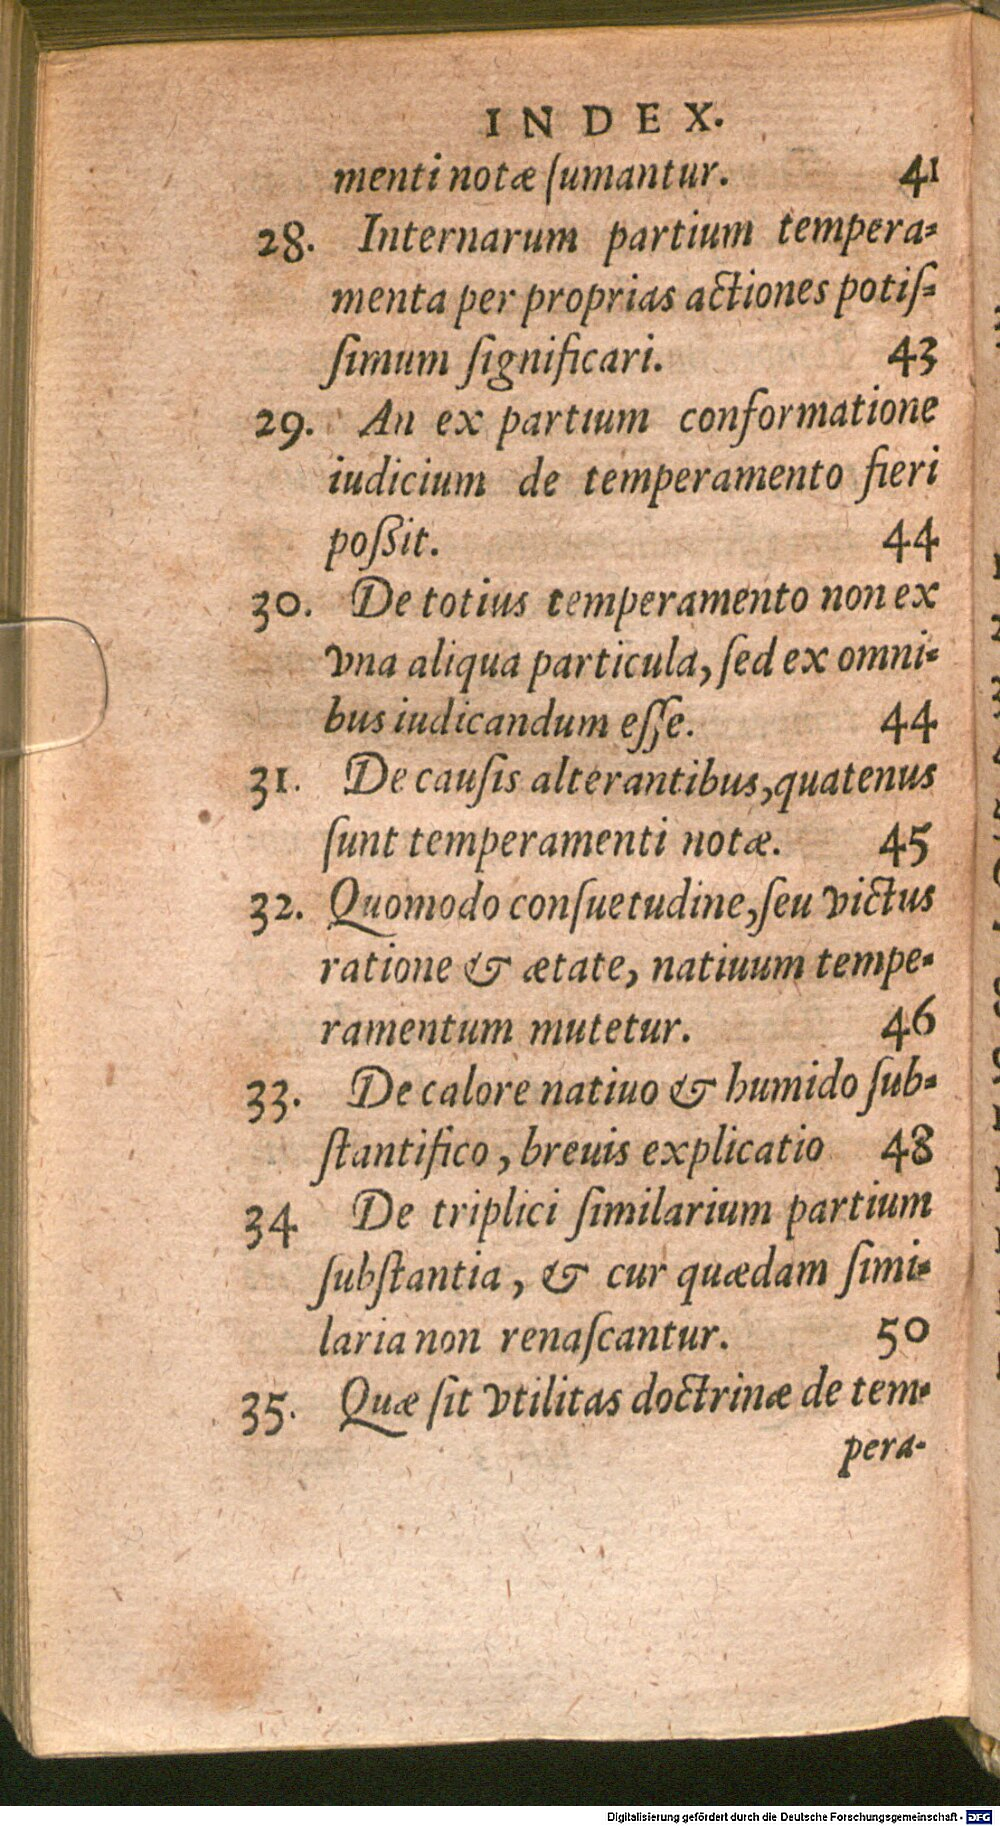 INDEX.
menti notæ ſumantur. 41
28. Internarum partium tempera-
menta per proprias actiones potiſ-
ſimum ſignificari. 43
29. An ex partium conformatione
iudicium de temperamento fieri
poßit. 44
30. De totius temperamento non ex
vna aliqua particula, ſed ex omni-
bus iudicandum eſſe. 44
31. De cauſis alterantibus, quatenus
ſunt temperamenti notæ. 45
32. Quomodo conſuetudine, ſeu victus
ratione & ætate, natiuum tempe-
ramentum mutetur. 46
33. De calore natiuo & humido ſub-
ſtantifico, breuis explicatio 48
34 De triplici ſimilarium partium
ſubſtantia, & cur quædam ſimi-
laria non renaſcantur. 50
35. Quæ ſit vtilitas doctrinæ de tem-
pera-
Digitalisierung gefördert durch die Deutsche Forschungsgemeinschaft - DFG